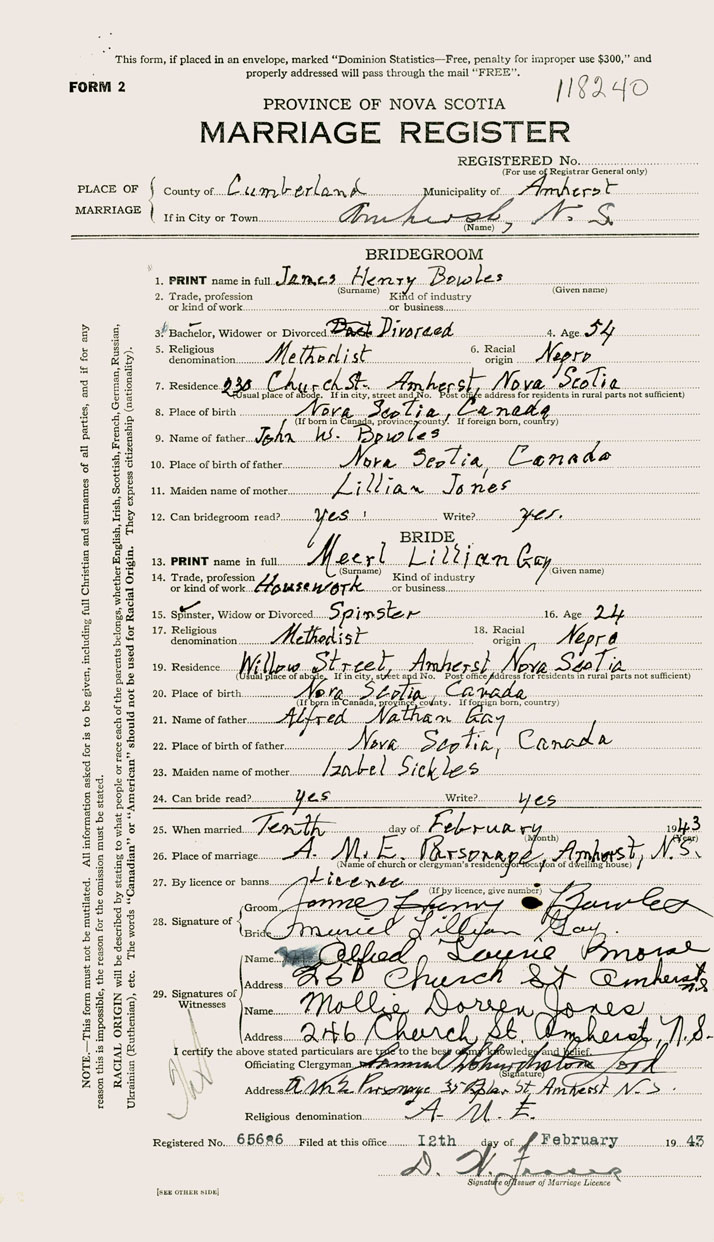 This form, if placed in an envelope, marked "Dominion Statistics—Free, penalty for improper use $300," and
properly addressed will pass through the mail "FREE".
FORM 2
118240
PROVINCE OF NOVA SCOTIA
MARRIAGE REGISTER
REGISTERED No.
(For use of Registrar General only)
PLACE OF MARRIAGE
County of Cumberland Municipality of Amherst
If in City or Town Amherst, N. S.
(Name)
BRIDEGROOM
1. PRINT name in full James Henry Bowles
(Surname) (Given name)
2. Trade, profession or kind of work Kind of industry or business
3. Bachelor, Widower or Divorced Divorced 4. Age 54
5. Religious denomination Methodist 6. Racial origin Negro
7. Residence 230 Church St. Amherst, Nova Scotia
(Usual place of abode. If in city, street and No. Post office address for residents in rural parts not sufficient)
8. Place of birth Nova Scotia, Canada
(If born in Canada, province, county. If foreign born, country)
9. Name of father John W. Bowles
10. Place of birth of father Nova Scotia, Canada
11. Maiden name of mother Lillian Jones
12. Can bridegroom read? yes Write? yes.
BRIDE
13. PRINT name in full Meerl Lillian Gay
(Surname) (Given name)
14. Trade, profession or kind of work Housework Kind of industry or business
15. Spinster, Widow or Divorced Spinster 16. Age 24
17. Religious denomination Methodist 18. Racial origin Negro
19. Residence Willow Street, Amherst Nova Scotia
(Usual place of abode. If in city, street and No. Post office address for residents in rural parts not sufficient)
20. Place of birth Nova Scotia, Canada
(If born in Canada, province, county. If foreign born, country)
21. Name of father Alfred Nathan Gay
22. Place of birth of father Nova Scotia, Canada
23. Maiden name of mother Izabel Sickles
24. Can bride read? yes Write? yes
25. When married Tenth day of February 1943
(Month) (Year)
26. Place of marriage A. M. E. Parsonage, Amherst, N.S.
(Name of church or clergyman's residence or location of dwelling house)
27. By licence or banns Licence
(If by licence, give number)
28. Signature of
Groom James Henry Bowles
Bride Muriel Lillian Gay.
29. Signatures of Witnesses
Name Alfred
Address Church St Amherst N.S
Name Mollie Dorren Jones
Address 246 Church St. Amherst, N.S.
I certify the above stated particulars are true to the best of my knowledge and belief.
Officiating Clergyman
(Signature)
Address A M E Parsonage St Amherst N.S.
Religious denomination A. M. E.
Registered No. 65686 Filed at this office 12th day of February 1943
D. W.
Signature of Issuer of Marriage Licence
[SEE OTHER SIDE]
NOTE.—This form must not be mutilated. All information asked for is to be given, including full Christian and surnames of all parties, and if for any
reason this is impossible, the reason for the omission must be stated.
RACIAL ORIGIN will be described by stating to what people or race each of the parents belongs, whether English, Irish, Scottish, French, German, Russian,
Ukrainian (Ruthenian), etc. The words "Canadian" or "American" should not be used for Racial Origin. They express citizenship (nationality).